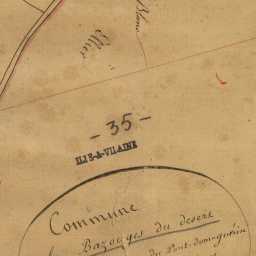 Blanc
Ellier
- 35 -
ILLE-&-VILAINE
Commune
Bazouges du desert
du Pont-dom-guérin